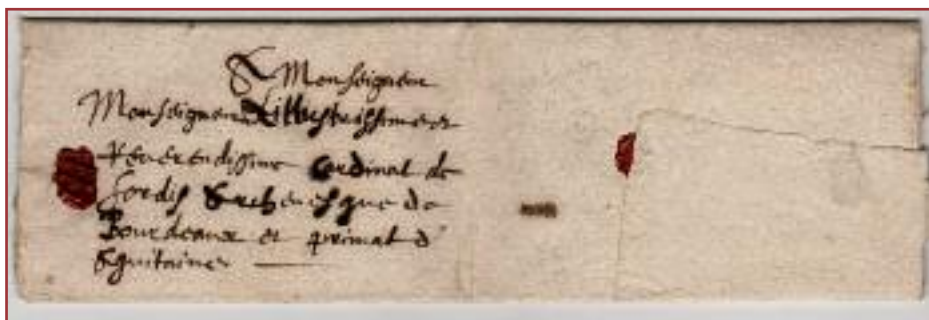 A Monseigneur
Monseigneur Lillustrissime et
Reverendissime Cardinal de
Sordis Archevesque de
Bourdeaux et primat d'
Aquitaine